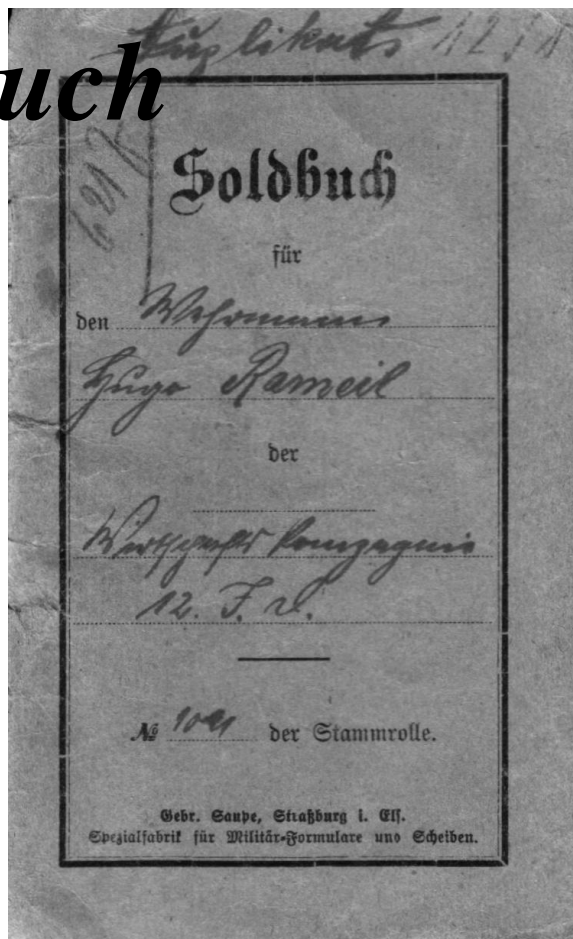 Duplikat
uch
Soldbuch
für
den Wehrmann
Hugo Rameil
der
Wirtschafts Kompagnie
12. F. D.
№ der Stammrolle.
Gebr. Saupe, Straßburg i. Els.
Spezialfabrik für Militär-Formulare und Scheiben.